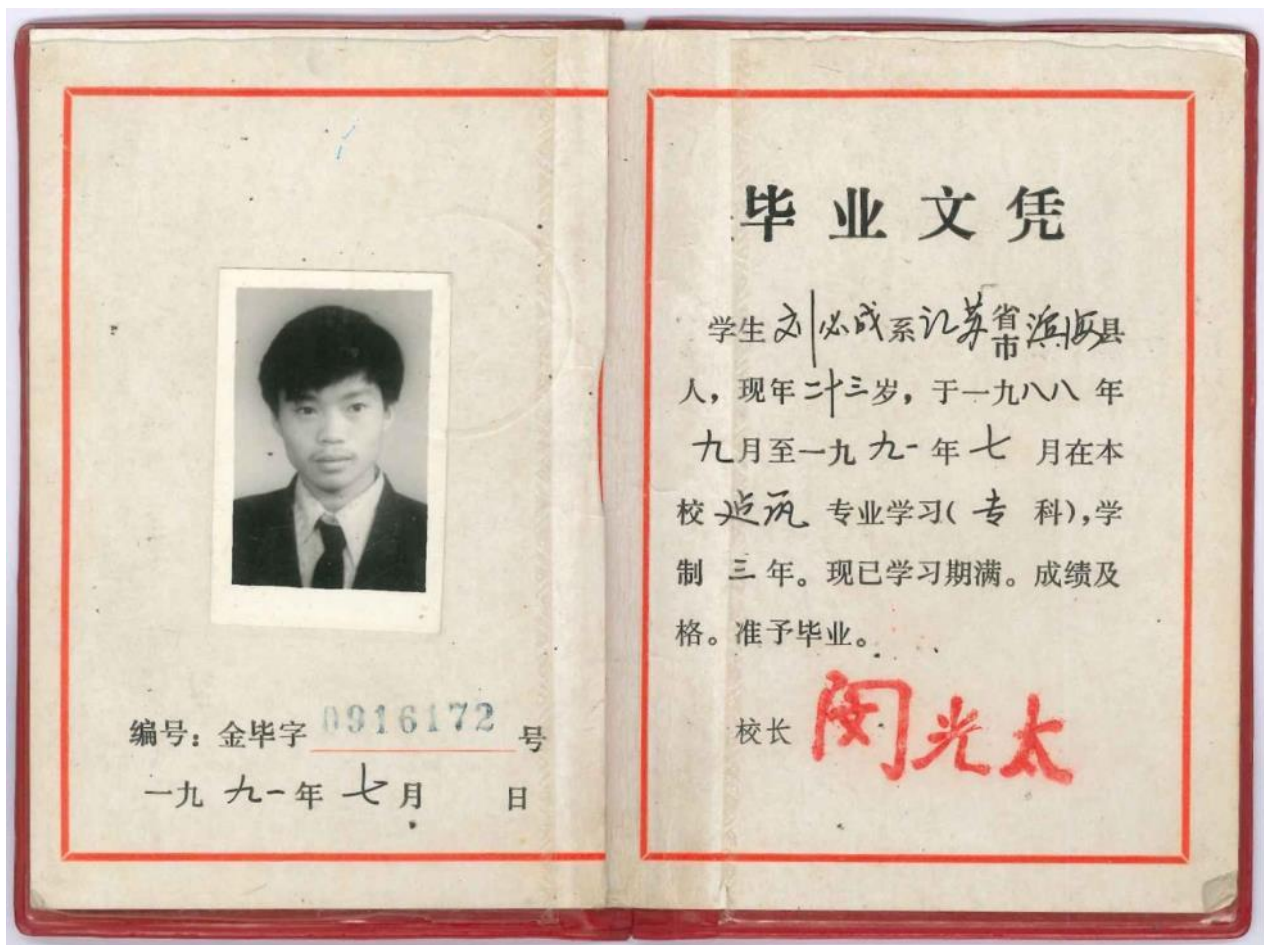 编号：金毕字 0916172 号
一九九一年七月 日
毕业文凭
学生刘必成系江苏省市滨海县
人，现年二十三岁，于一九八八年
九月至一九九一年七月在本
校建筑专业学习(专科),学
制三年。现已学习期满。成绩及
格。准予毕业。
校长 闵光太